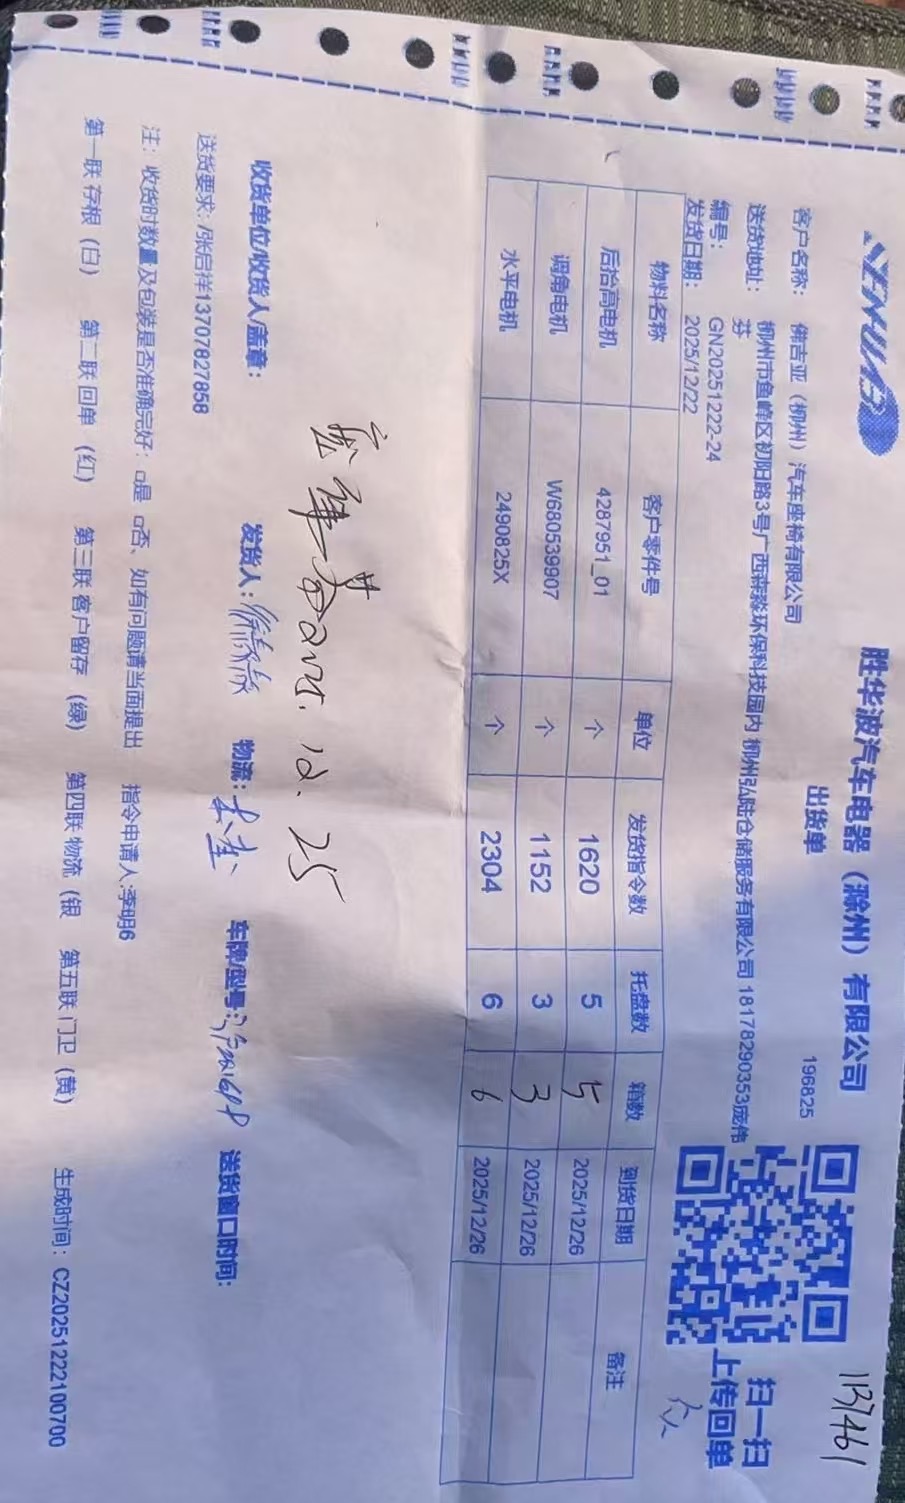 SENHUABO
胜华波汽车电器（滁州）有限公司
出货单
196825
113461
扫一扫
上传回单
客户名称： 佛吉亚（柳州）汽车座椅有限公司
送货地址： 柳州市鱼峰区初阳路3号广西森淼环保科技园内 柳州弘陆仓储服务有限公司 18178290353庞伟
芬
编号： GN20251222-24
发货日期： 2025/12/22
物料名称 客户零件号 单位 发货指令数 托盘数 箱数 到货日期 备注
后抬高电机 4287951_01 个 1620 5 5 2025/12/26
调角电机 W680539907 个 1152 3 3 2025/12/26
水平电机 2490825X 个 2304 6 6 2025/12/26
2025. 12. 25
收货单位/收货人/盖章： 发货人： 物流： 车牌/型号： 送货窗口时间：
送货要求：/张启祥13707827858
注：收货时数量及包装是否准确完好：□是 □否、如有问题请当面提出 指令申请人:李明6
第一联 存根（白） 第二联 回单（红） 第三联 客户留存（绿） 第四联 物流（银 第五联 门卫（黄） 生成时间：CZ20251222100700